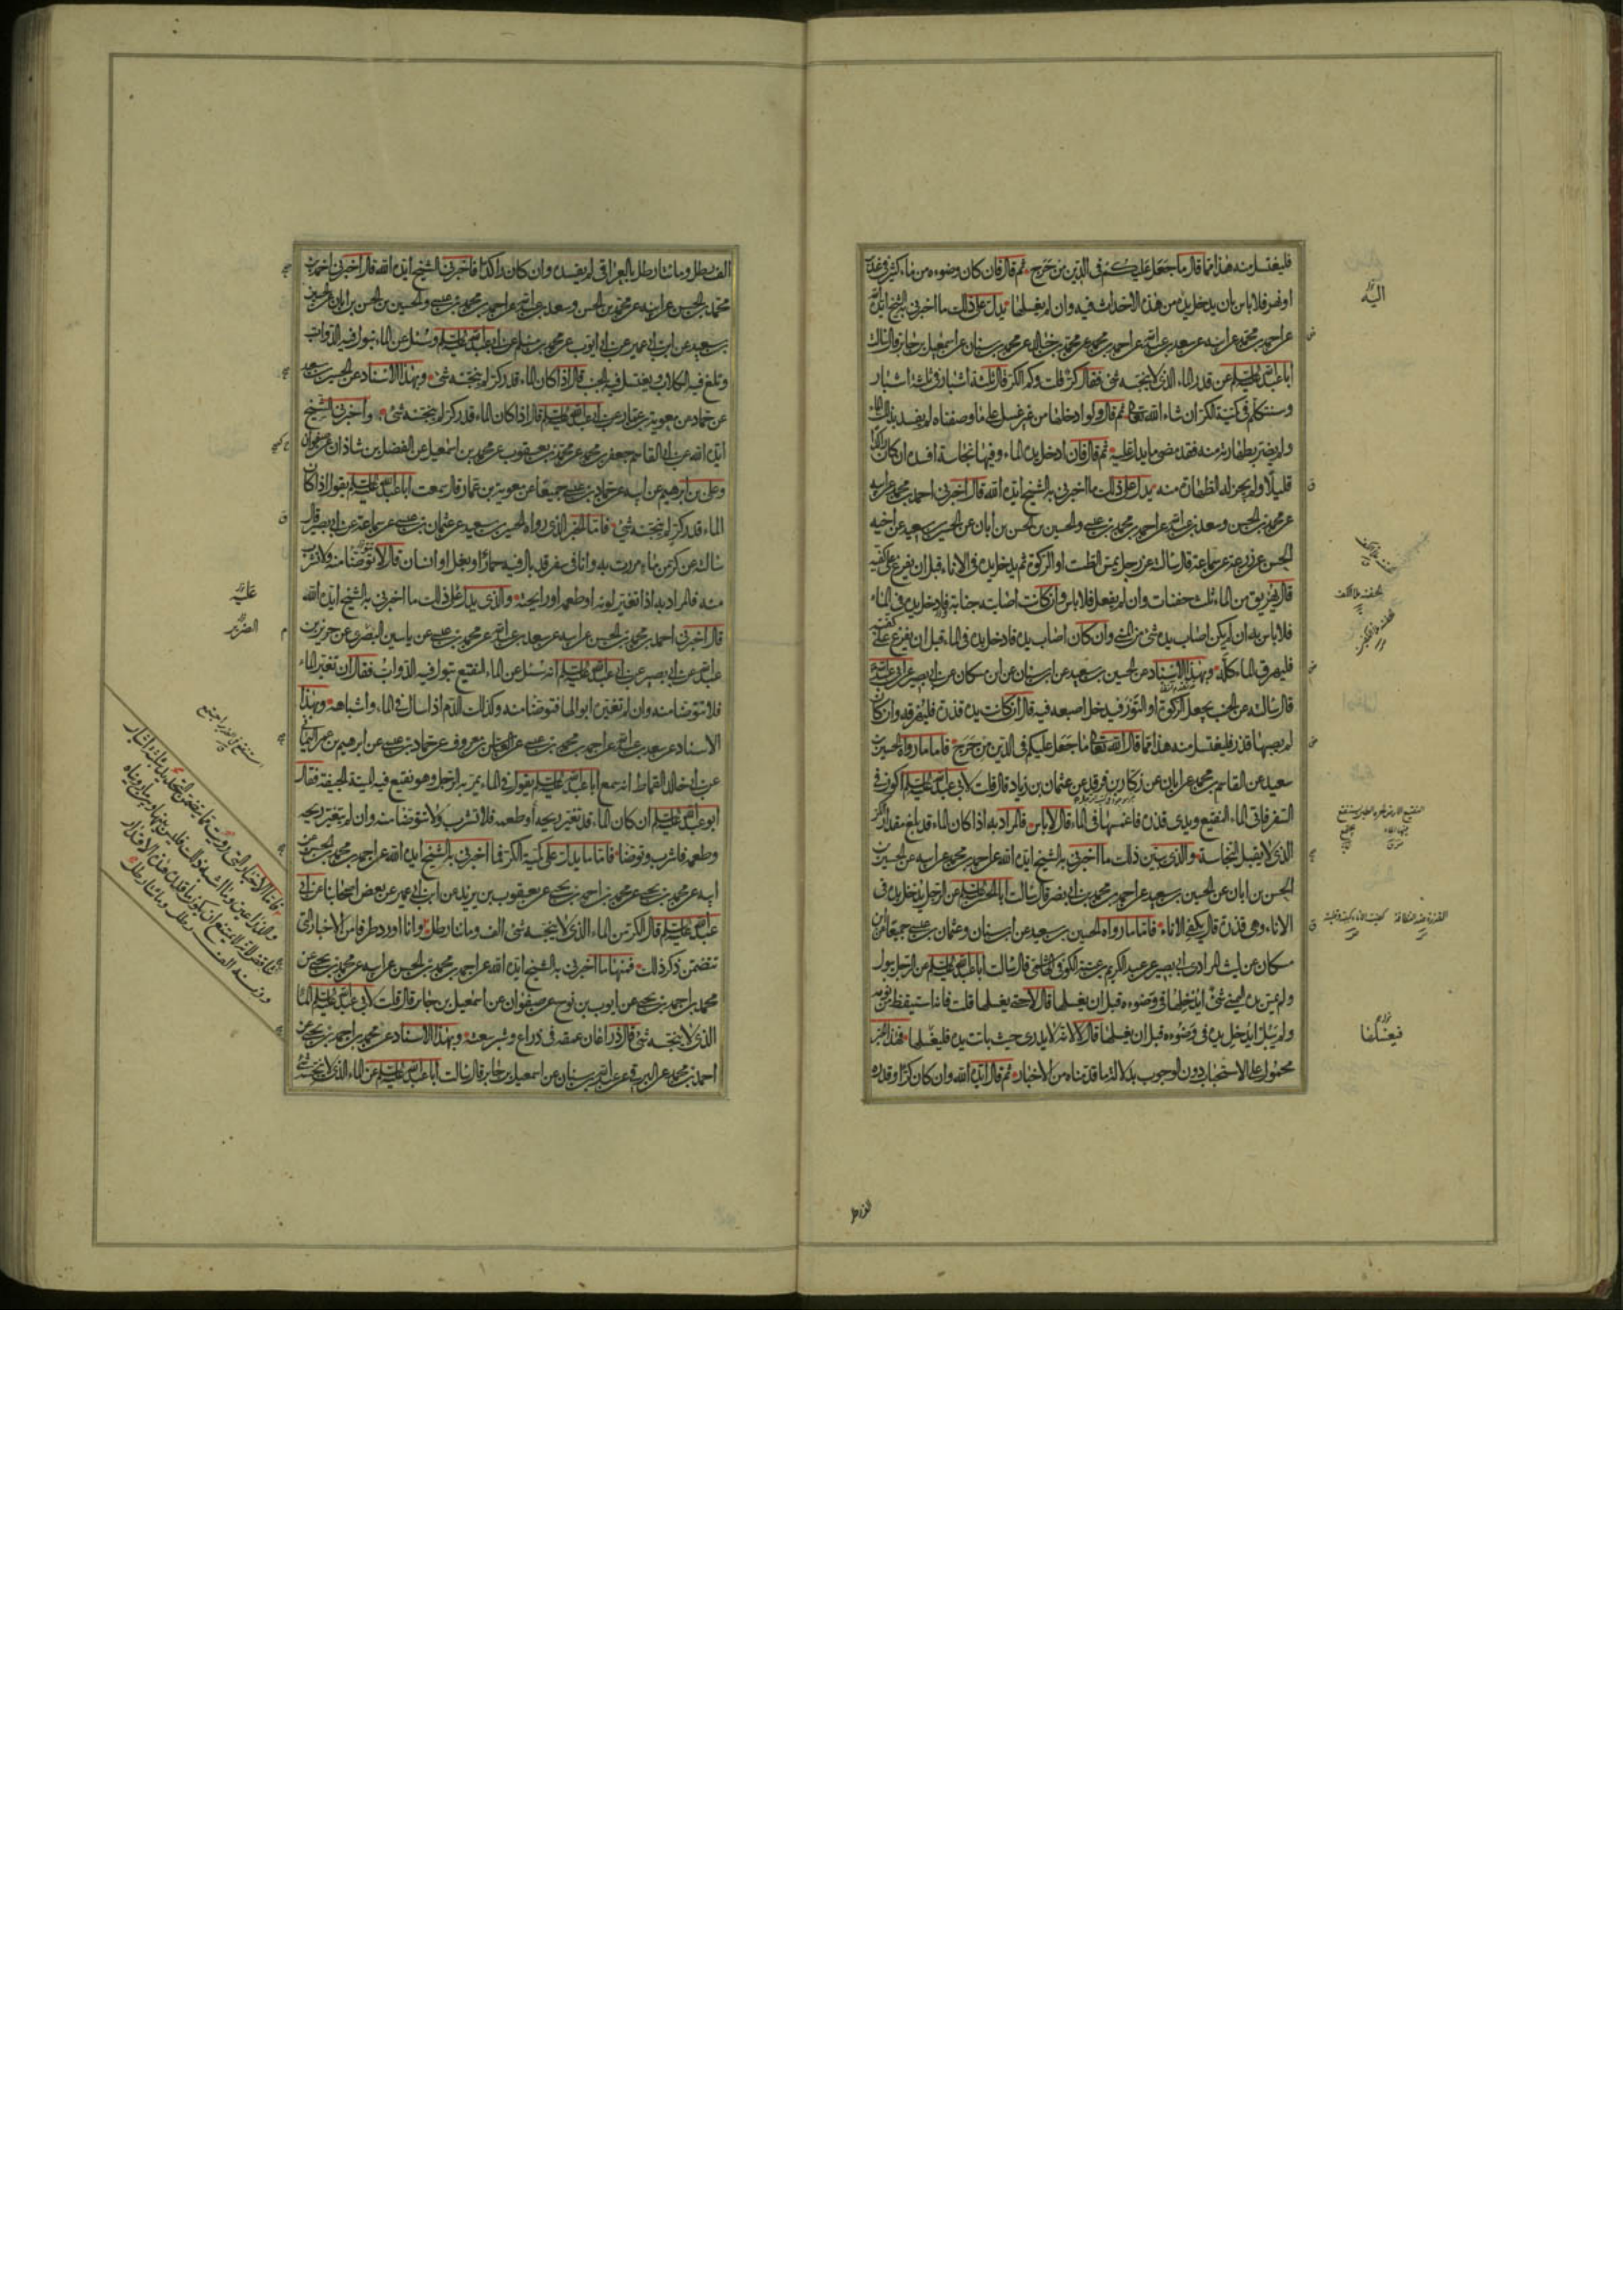 فليغتسل منه هذا مما قال ما جعل عليكم في الدين من حرج ثم قال فان كان وضوءه من ماء كثير في غدير
او نهر فلا باس بان يدخل يده من هذه الاحداث فيه وان لم يغسلها يدل على ذلك ما اخبرني به الشيخ ايده الله
عن احمد بن محمد عن ابيه عن سعد بن عبد الله عن احمد بن محمد عن محمد بن خالد عن محمد بن سنان عن اسمعيل بن جابر قال سالت
ابا عبد الله عليه السلام عن قدر الماء الذي لا ينجسه شئ فقال كر قلت وكم الكر قال ثلثة اشبار في ثلثة اشبار
وسنتكلم في كمية الكر ان شاء الله تعالى ثم قال ولو ادخلها من غير غسل على ما وصفناه لم يفسد بذلك الماء
ولم يضر بطهارته منه فقد مضى ما يدل عليه ثم قال فان ادخل يده الماء وفيها نجاسة افسده ان كان راكدا
قليلا ولم يجز له الطهارة منه يدل على ذلك ما اخبرني به الشيخ ايده الله قال اخبرني احمد بن محمد عن ابيه
عن محمد بن الحسن وسعد بن عبد الله عن احمد بن محمد بن عيسى والحسين بن الحسن بن ابان عن الحسين بن سعيد عن اخيه
الحسن عن زرعة عن سماعة قال سالته عن رجل يمس الطست او الركوة ثم يدخل يده في الاناء قبل ان يفرغ على كفيه
قال يهريق من الماء ثلث حفنات وان لم يفعل فلا باس وان كانت اصابته جنابة فادخل يده في الماء
فلا باس به ان لم يكن اصاب يده شئ من المني وان كان اصاب يده فادخل يده في الماء قبل ان يفرغ على كفيه
فليهرق الماء كله وبهذا الاسناد عن الحسين بن سعيد عن ابن سنان عن ابن مسكان عن ابي بصير عن ابي عبد الله
قال سالته عن الجنب يجعل الركوة او التور فيدخل اصبعه فيه قال ان كانت يده قذرة فليهرقه وان كان
لم يصبها قذر فليغتسل منه هذا مما قال الله تعالى ما جعل عليكم في الدين من حرج فاما ما رواه الحسين بن
سعيد عن القاسم بن محمد عن ابان عن زكار بن فرقد عن عثمان بن زياد قال قلت لابي عبد الله عليه السلام اكون في
السفر فاتي الماء النقيع ويدي قذرة فاغمسها في الماء قال لا باس فالمراد به اذا كان الماء قد بلغ مقدار الكر
الذي لا يقبل النجاسة والذي يبين ذلك ما اخبرني به الشيخ ايده الله عن احمد بن محمد عن ابيه عن الحسين بن
الحسن بن ابان عن الحسين بن سعيد عن احمد بن محمد بن ابي نصر قال سالت ابا الحسن عليه السلام عن الرجل يدخل يده في
الاناء وهي قذرة قال يكفئ الاناء فاما ما رواه الحسين بن سعيد عن ابن سنان وعثمان بن عيسى جميعا عن ابن
مسكان عن ليث المرادي ابي بصير عن عبد الكريم بن عتبة الكوفي الهاشمي قال سالت ابا عبد الله عليه السلام عن الرجل يبول
ولم يمس يده اليمنى شئ ايدخلها في وضوءه قبل ان يغسلها قال لا حتى يغسلها قلت فانه استيقظ من نومه
ولم يبل ايدخل يده في وضوءه قبل ان يغسلها قال لا لانه لا يدري حيث باتت يده فليغسلها فهذا الخبر
محمول على الاستحباب دون الوجوب بدلالة ما قدمناه من الاخبار ثم قال ايده الله وان كان كرا وقدره
اليه
فيغسلها
الف رطل
الف رطل ومائتا رطل بالعراقي لم يفسده وان كان راكدا فاخبرني الشيخ ايده الله قال اخبرني احمد بن
محمد بن الحسن عن ابيه عن محمد بن الحسن وسعد بن عبد الله عن احمد بن محمد بن عيسى والحسين بن الحسن بن ابان عن الحسين
بن سعيد عن ابن ابي عمير عن ابي ايوب عن محمد بن مسلم عن ابي عبد الله عليه السلام وسئل عن الماء تبول فيه الدواب
وتلغ فيه الكلاب ويغتسل فيه الجنب قال اذا كان الماء قدر كر لم ينجسه شئ وبهذا الاسناد عن الحسين بن سعيد
عن حماد عن معوية بن عمار عن ابي عبد الله عليه السلام قال اذا كان الماء قدر كر لم ينجسه شئ واخبرني الشيخ
ايده الله عن ابي القاسم جعفر بن محمد عن محمد بن يعقوب عن محمد بن اسمعيل عن الفضل بن شاذان عن صفوان
وعلي بن ابرهيم عن ابيه عن حماد بن عيسى جميعا عن معوية بن عمار قال سمعت ابا عبد الله عليه السلام يقول اذا كان
الماء قدر كر لم ينجسه شئ فاما الخبر الذي رواه الحسين بن سعيد عن عثمان بن عيسى عن سماعة عن ابي بصير قال
سالته عن كر من ماء مررت به وانا في سفر قد بال فيه حمار او بغل او انسان قال لا توضا منه ولا تشرب
منه فالمراد به اذا تغير لونه او طعمه او رايحته والذي يدل على ذلك ما اخبرني به الشيخ ايده الله
قال اخبرني احمد بن محمد بن الحسن عن ابيه عن سعد بن عبد الله عن محمد بن عيسى عن ياسين البصري عن حريز بن
عبد الله عن ابي بصير عن ابي عبد الله عليه السلام انه سئل عن الماء النقيع تبول فيه الدواب فقال ان تغير الماء
فلا تتوضا منه وان لم تغيره ابوالها فتوضا منه وكذلك الدم اذا سال في الماء واشباهه وبهذا
الاسناد عن سعد بن عبد الله عن احمد بن محمد بن عيسى عن العباس بن معروف عن حماد بن عيسى عن ابرهيم بن عمر اليماني
عن ابي خالد القماط انه سمع ابا عبد الله عليه السلام يقول في الماء يمر به الرجل وهو نقيع فيه الميتة الجيفة فقال
ابو عبد الله عليه السلام ان كان الماء قد تغير ريحه او طعمه فلا تشرب ولا تتوضا منه وان لم يتغير ريحه
وطعمه فاشرب وتوضا فاما ما يدل على كمية الكر فما اخبرني به الشيخ ايده الله عن احمد بن محمد بن الحسن عن
ابيه عن محمد بن يحيى عن محمد بن احمد بن يحيى عن يعقوب بن يزيد عن ابن ابي عمير عن بعض اصحابنا عن ابي
عبد الله عليه السلام قال الكر من الماء الذي لا ينجسه شئ الف ومائتا رطل وانا اورد طرفا من الاخبار التي
تتضمن ذكر ذلك فمنها ما اخبرني به الشيخ ايده الله عن احمد بن محمد بن الحسن عن ابيه عن محمد بن يحيى عن
محمد بن احمد بن يحيى عن ايوب بن نوح عن صفوان عن اسمعيل بن جابر قال قلت لابي عبد الله عليه السلام الماء
الذي لا ينجسه شئ قال ذراعان عمقه في ذراع وشبر سعته وبهذا الاسناد عن محمد بن احمد بن يحيى عن
احمد بن محمد عن البرقي عن عبد الله بن سنان عن اسمعيل بن جابر قال سالت ابا عبد الله عليه السلام عن الماء الذي لا ينجسه شئ
عليه
الضرير
فاما الاخبار التي رويت مما يتضمن التحديد بثلثة اشبار
والذراعين وما اشبه ذلك فليس بينها وبين ما رويناه
تناقض لانه لا يمتنع ان يكون ما قدره هذه الاقدار
وزنه الف رطل ومائتا رطل